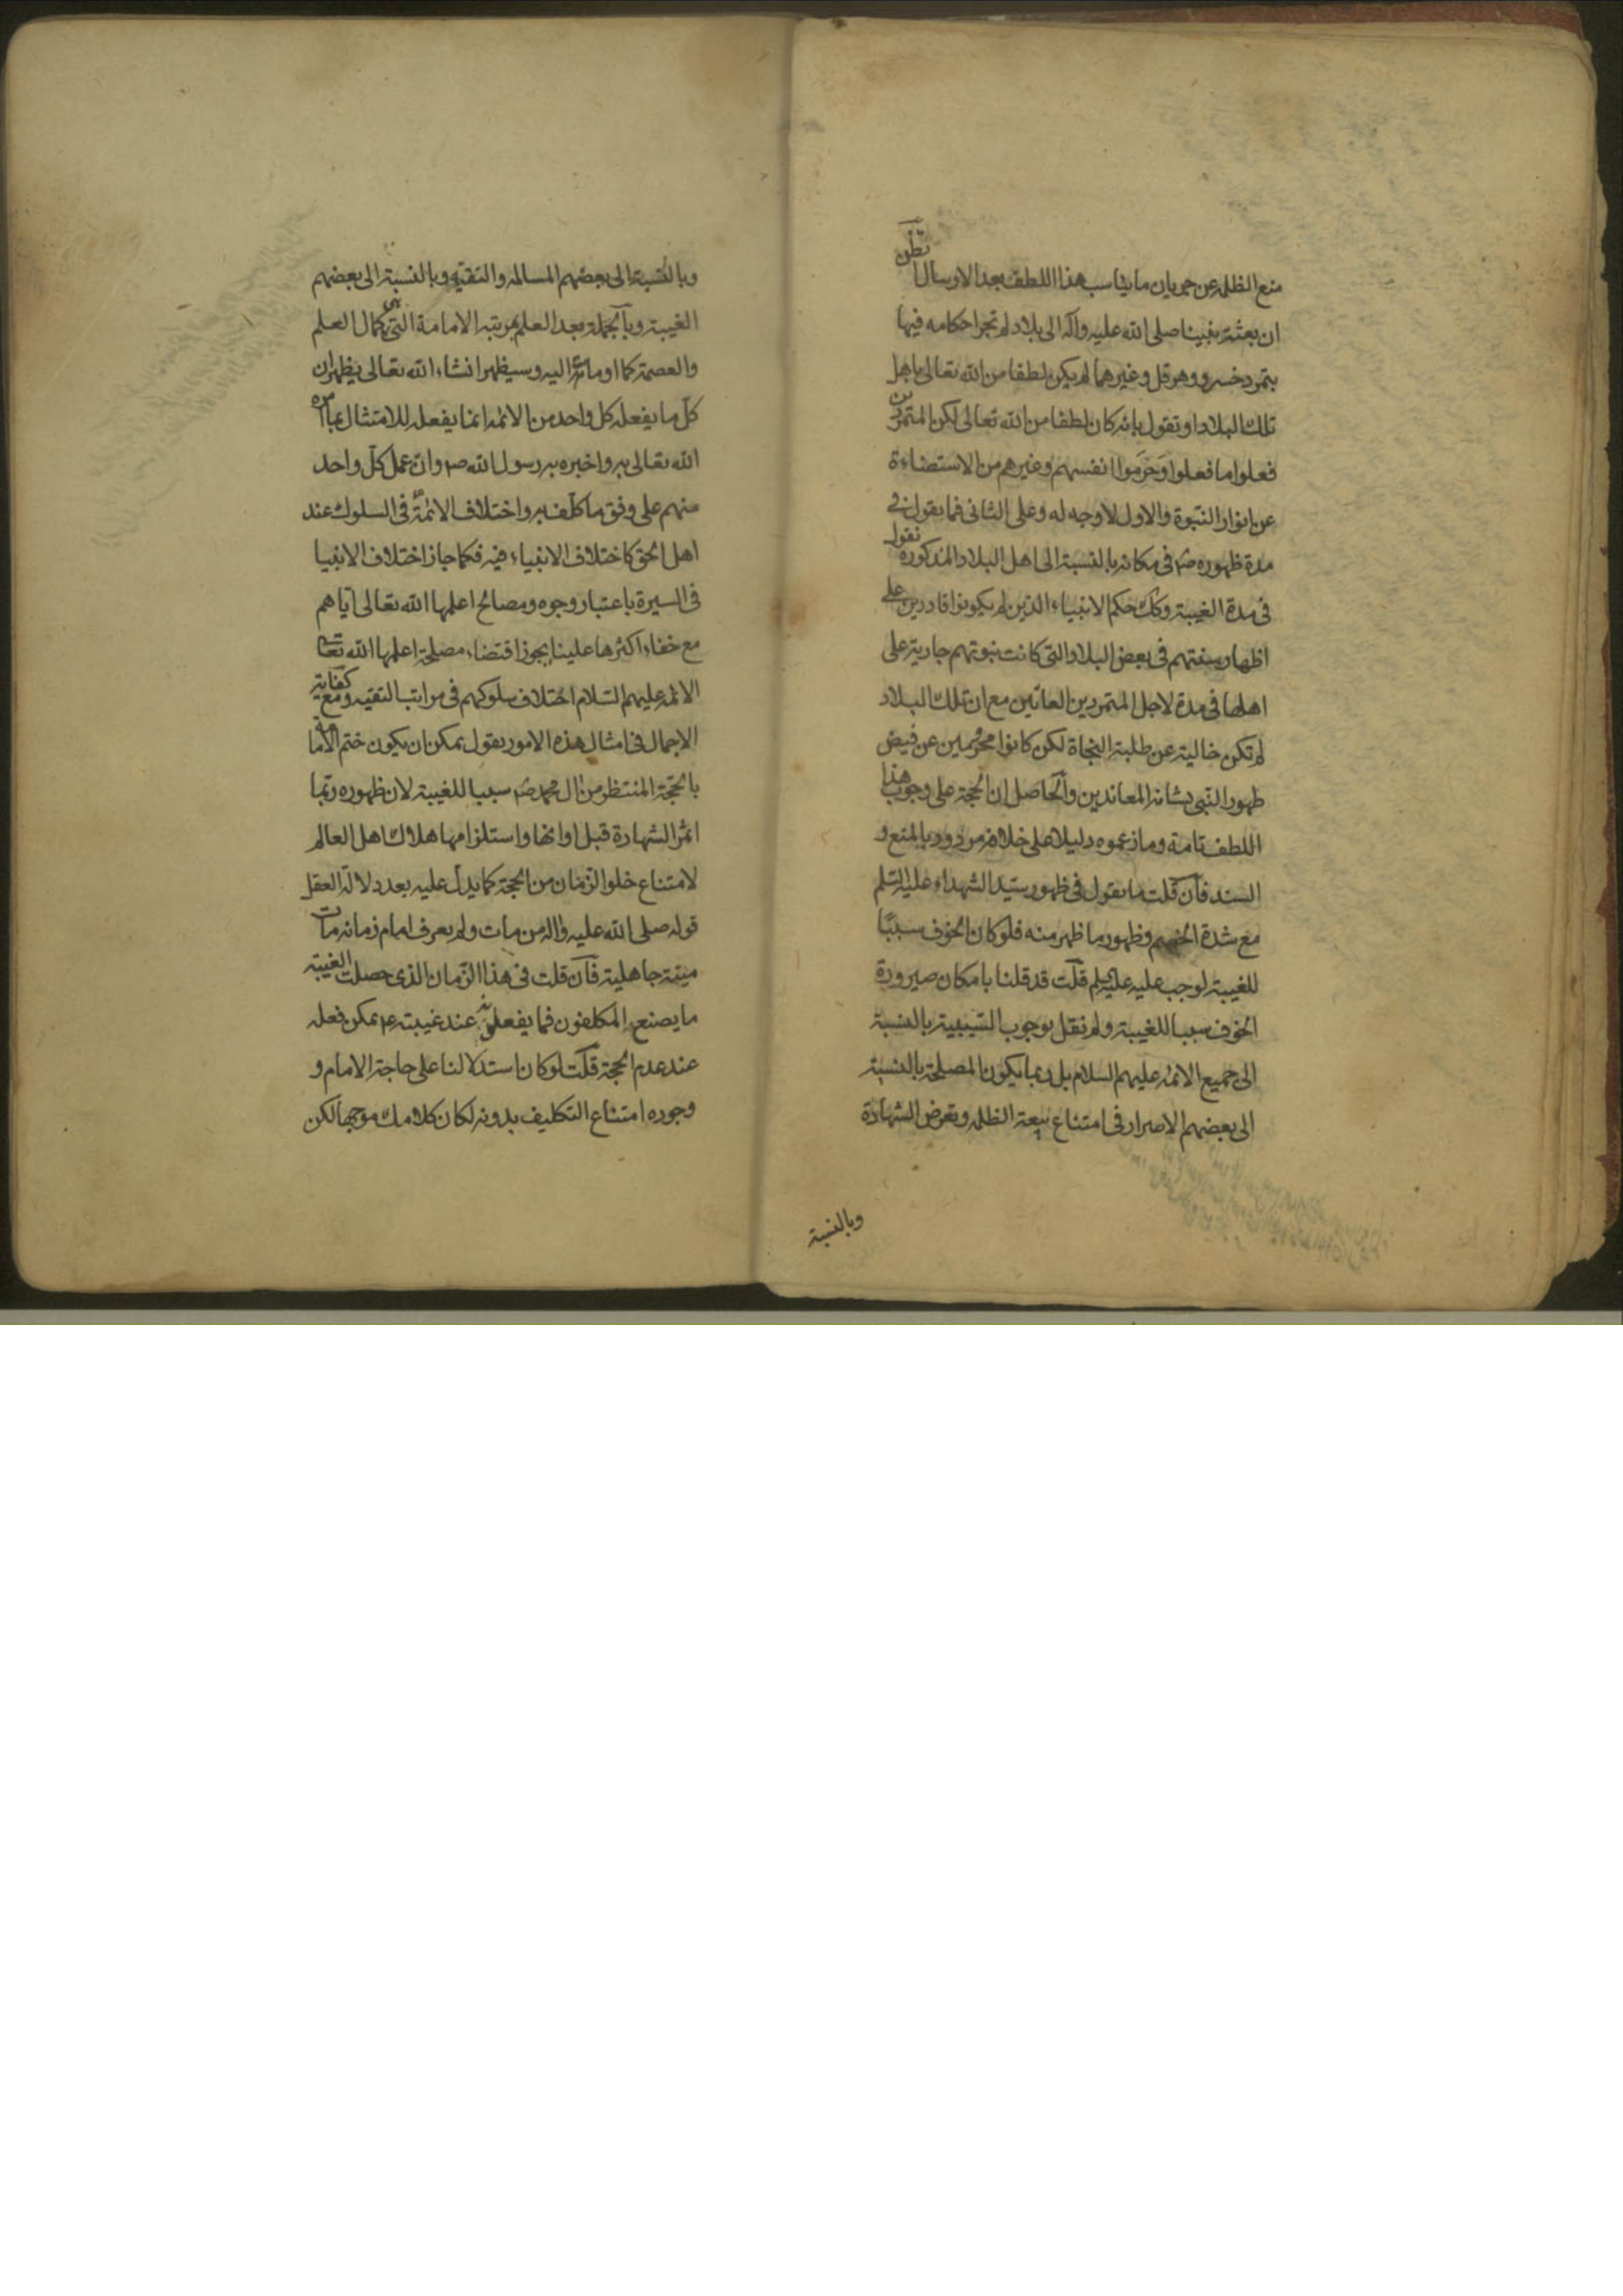 منع الظلمه عن جريان ما يناسب هذا اللطف بعد الارسال اتظن
ان بعثة نبينا صلى الله عليه وآله الى بلاد لم تجر احكامه فيها
بتمرد خسرو وهرقل وغيرهما لم يكن لطفا من الله تعالى باهل
تلك البلاد او تقول بانه كان لطفا من الله تعالى لكن المتمردين
فعلوا ما فعلوا وحرموا انفسهم وغيرهم من الاستضاءة
عن انوار النبوة والاول لا وجه له وعلى الثانى فما تقول فى
مدة ظهوره ص فى مكانه بالنسبة الى اهل البلاد المذكوره نقول
فى مدة الغيبة وكك حكم الانبياء الذين لم يكونوا قادرين على
اظهار سنتهم فى بعض البلاد التى كانت نبوتهم جارية على
اهلها فى مدة لاجل المتمردين العاتين مع ان تلك البلاد
لم تكن خالية عن طلبة النجاة لكن كانوا محرومين عن فيض
ظهور النبى بشانه المعاندين والحاصل ان الحجة على وجوب هذا
اللطف تامة وما زعموه دليلا على خلافه مردود بالمنع و
السند فان قلت ما تقول فى ظهور سيد الشهداء عليه السلم
مع شدة الخصم وظهور ما ظهر منه فلو كان الخوف سببا
للغيبة لوجب عليه قلت قد قلنا بامكان صيرورة
الخوف سببا للغيبة ولم نقل بوجوب السببية بالنسبة
الى جميع الائمه عليهم السلام بل ربما يكون المصلحة بالنسبة
الى بعضهم الاصرار فى امتناع بيعة الظلمه وتعرض الشهادة
وبالنسبة
وبالنسبة الى بعضهم المسالمه والتقيه وبالنسبة الى بعضهم
الغيبة وبالجملة بعد العلم بمرتبه الامامة التى هى كمال العلم
والعصمة كما اومات اليه وسيظهر انشاء الله تعالى يظهر ان
كل ما يفعله كل واحد من الائمه انما يفعله للامتثال بما امره
الله تعالى به واخبره به رسول الله ص وان عمل كل واحد
منهم على وفق ما كلف به واختلاف الائمة فى السلوك عند
اهل الحق كاختلاف الانبياء فيه فكما جاز اختلاف الانبيا
فى السيرة باعتبار وجوه ومصالح اعلمها الله تعالى اياهم
مع خفاء اكثرها علينا يجوز اقتضاء مصلحة اعلمها الله تعالى
الائمه عليهم السلام اختلاف سلوكهم فى مراتب التقيه ومع كفاية
الاجمال فى امثال هذه الامور نقول يمكن ان يكون ختم الامامة
بالحجة المنتظر من ال محمد ص سببا للغيبة لان ظهوره ربما
اثمر الشهادة قبل اوانها واستلزامها هلاك اهل العالم
لامتناع خلو الزمان من الحجة كما يدل عليه بعد دلالة العقل
قوله صلى الله عليه واله من مات ولم يعرف امام زمانه مات
ميتة جاهلية فان قلت فى هذا الزمان الذى حصلت الغيبة
ما يصنع المكلفون فما يفعلونه عند غيبته ع يمكن فعله
عند عدم الحجة قلت لو كان استدلالنا على حاجة الامام و
وجوده امتناع التكليف بدونه لكان كلامك موجها لكن